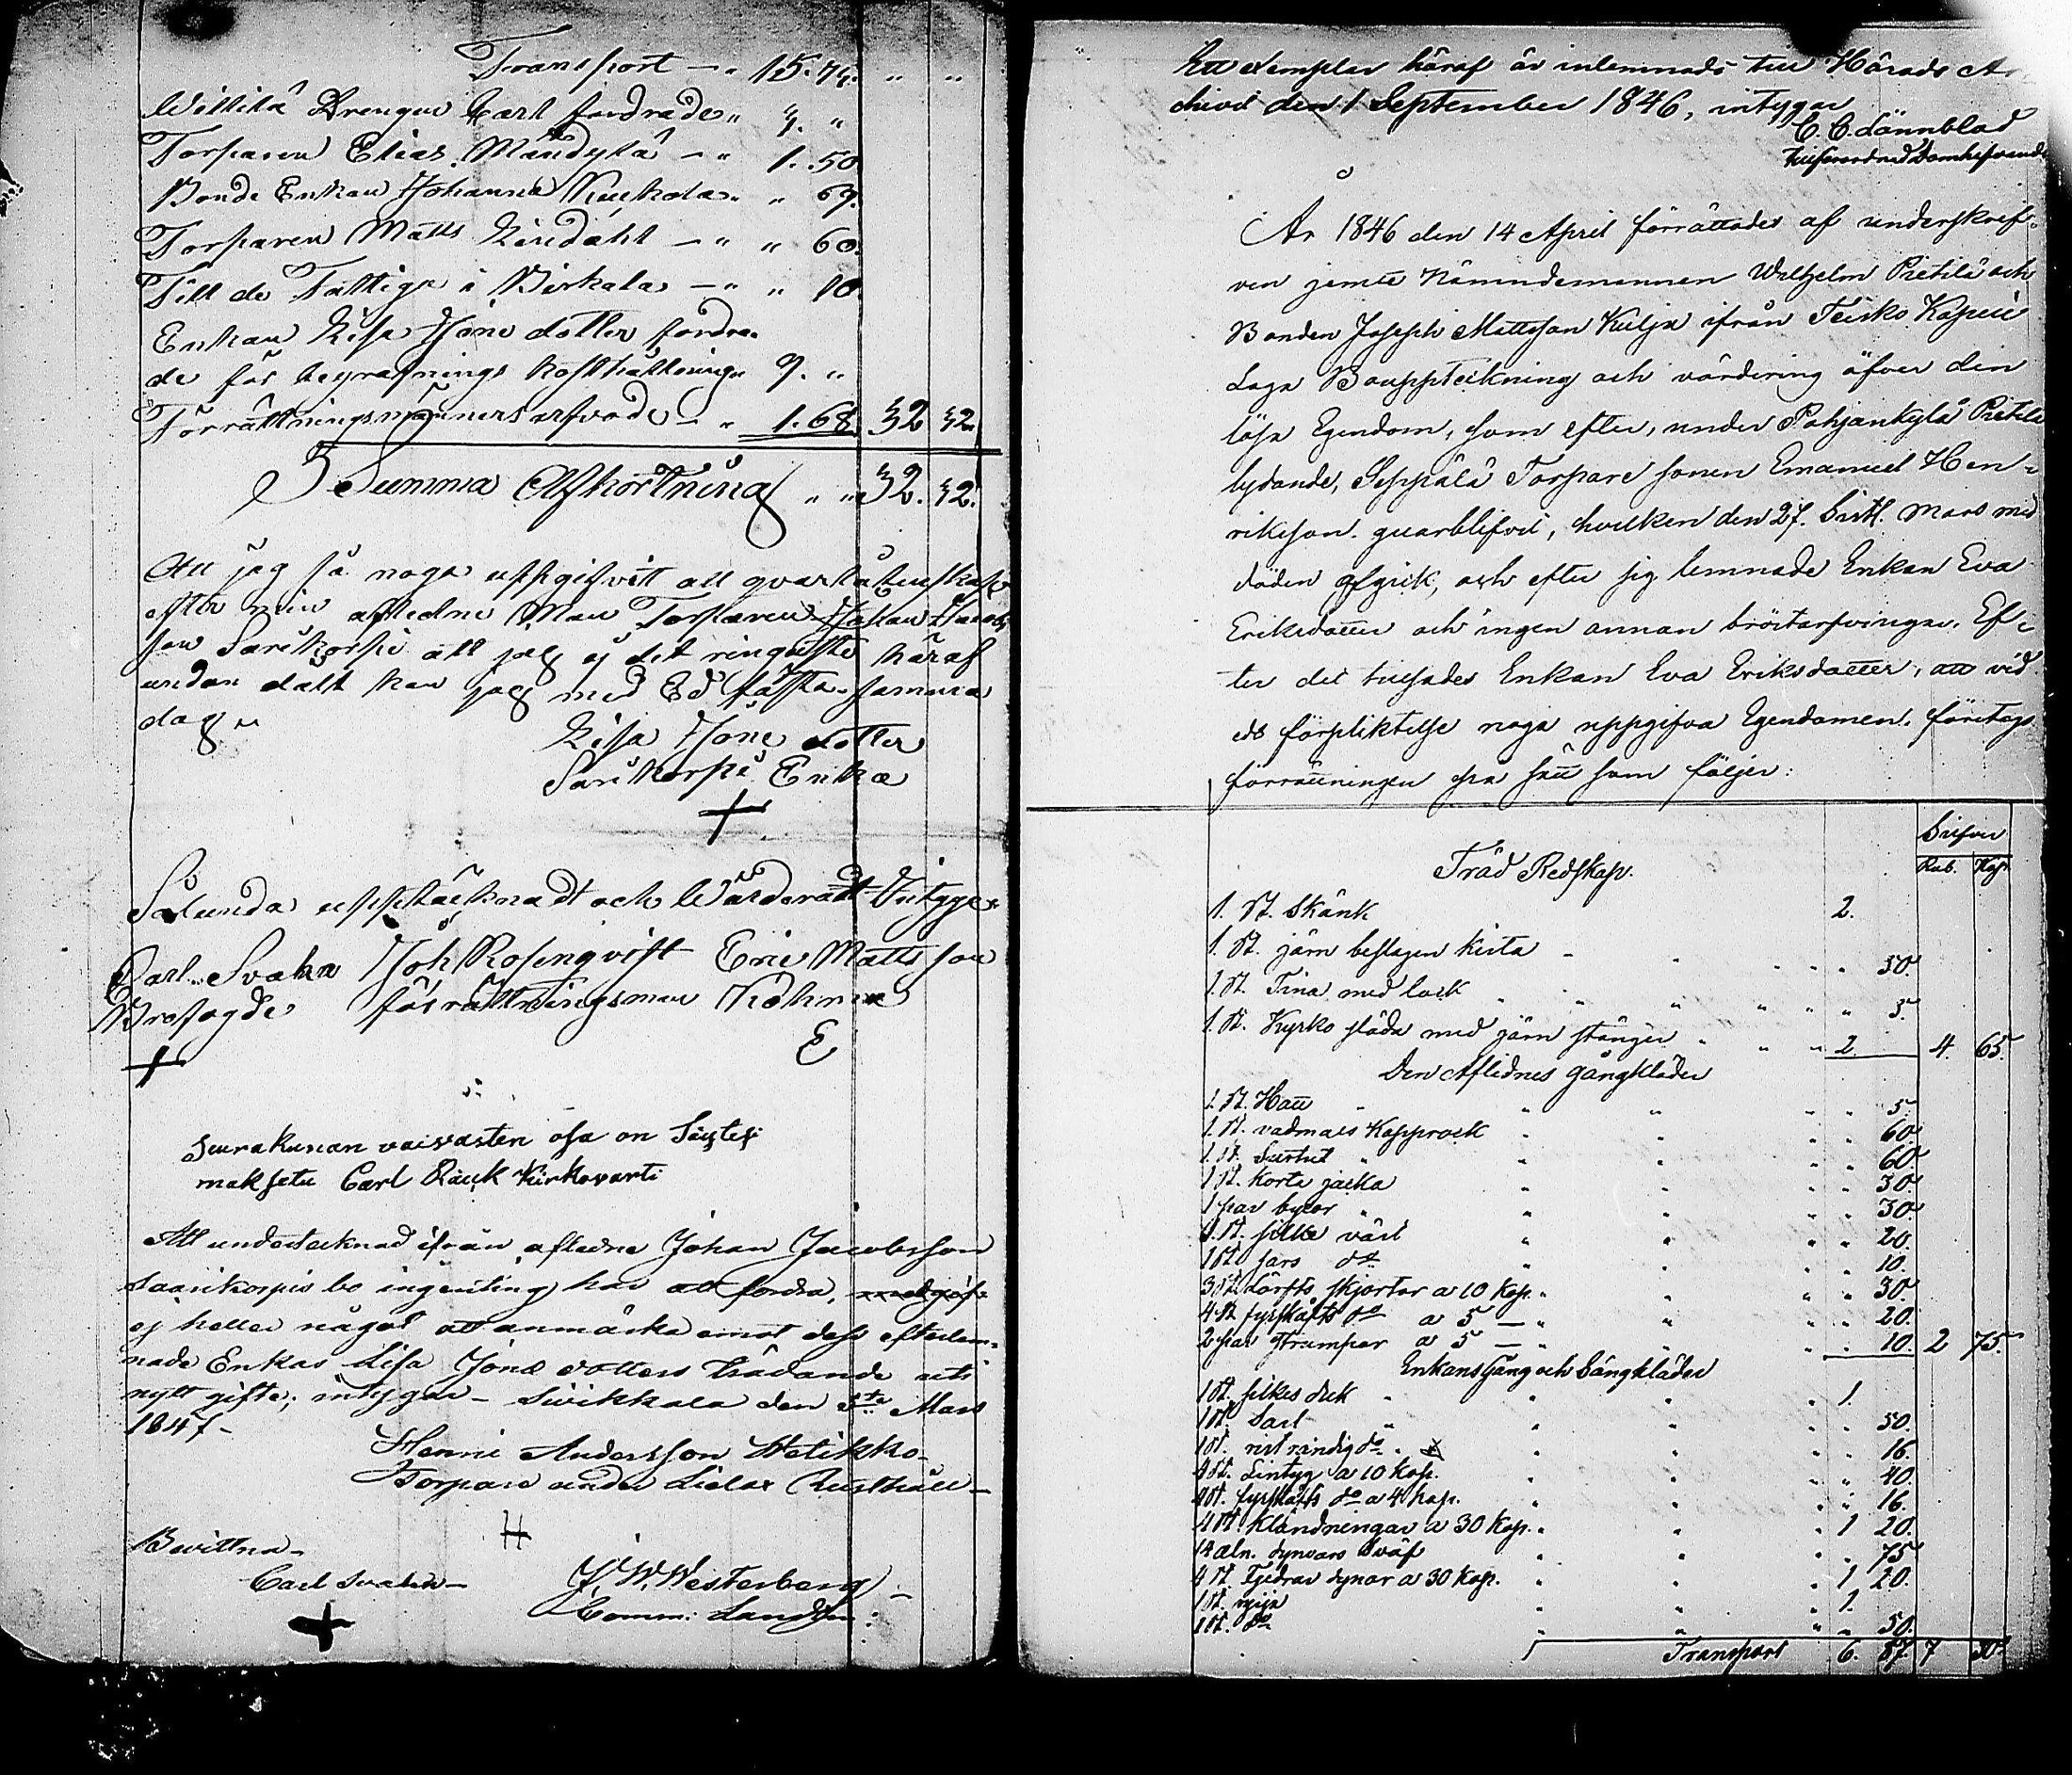 Transport — „ 15. 74. „ „
Wittilä Drengen Carl fordrade „ 3. „
Torparen Elias Mändylä — „ 1. 50
Bonde Enkan Johanna Kuckola „ „ 69.
Torparen Matts Lindahl — „ „ 60.
Till de Fattiga i Birkala — „ „ 10.
Enkan Lisa Jöns dotter fordra„
de för begrafnings kosthållning „ 9. „
Förrättningsmännens arfvode — „ 1. 68. 32 32.
Summa Afkortning „ „ 32. 32.
Att jag så noga uppgifvit all qvarlåtenskap
efter min afledne Man Torparen Johan Jacobs
son Sarikorpi att jag ej det ringaste häraf
undan dålt kan jag med Ed fästa samma
dag „
Lisa Jöns dotter
Sarikorpi Enka
+
Sålunda upptäcknadt och Wärderadt Intyga
Carl Svahn Joh Rosenqvist Eric Mattsson
Brofogde förrättningsman Kohmu
+ E
Seurakunan vaivasten osa on Tästesi
maksetu Carl Rauk Kirkovarti
Att undertecknad ifrån afledne Johan Jacobsson
Saarikorpis bo ingenting har att fordra,
ej heller något att anmärka emot dess efterlem„
nade Enkas Lisa Jöns dotters trädande uti
nytt gifte; intygar — Suikkala den 5te Mars
1847 —
Henric Andersson Hetikko
Torpare under Lielax Rusthåll —
H
Bevittna —
Carl Svahn — J. W. Westerberg —
+ Comm: Landtm:
Ett exemplar häraf är inlemnadt till Härads Ar
chivet den 1 September 1846, intygar
C. C. Lönnblad
tillförordnad Domhafvande
År 1846 den 14 April förrättades af underskref„
ven jemte Nämndemannen Wilhelm Pietilä och
Bonden Joseph Mattsson Kulja ifrån Teisko Kapell
Laga Bouppteckning och värdering öfver den
lösa Egendom, som efter, under Pohjankylä Pietilä
lydande, Seppälä Torpare sonen Emanuel Hen„
riksson qvarblifvit, hvilken den 27. sistl. Mars med
döden afgick, och efter sig lemnade Enkan Eva
Eriksdatter och ingen annan bröstarfvinge. Ef„
ter det tillsades Enkan Eva Eriksdatter, att vid
eds förpliktelse noga uppgifva Egendomen, företogs
förrättningen på sätt som följer:
Silfver
Träd Redskap. Rub. Kop
1. St. Skänk 2.
1. St. järn beslagen kista „ „ „ „ 50.
1. St. Tina med lock „ „ „ „ 5.
1. St. Kyrko släda med järn stänger „ „ „ 2. 4. 65.
Den Aflidnes gångkläder
1. St. Hatt „ „ „ „ 5.
1. St. vadmals Kapprock „ „ „ 60.
1. St. Surtut „ „ „ „ 60.
1 St. Korta jacka „ „ „ 30.
1 par byxor „ „ „ „ 30.
1. St. silke väst „ „ „ 20.
1 St. sars do „ „ „ 10.
3 St. Lärfts skjortor a 10 Kop. „ „ „ 30.
4 St fyrskäfts do a 5 — „ „ „ 20.
2 par strumpor a 5 — „ „ „ 10. 2 75.
Enkans Gång och Sängkläder
1 St. silkes duk „ „ „ 1.
1 St. Sarl „ „ „ 50.
1 St. do „ „ „ 16.
4 St. Lintyg a 10 Kop. „ „ „ 40.
4 St. fyrskäfts do a 4 kop. „ „ „ 16.
4 St. Kländningar a 30 Kop. „ „ „ 1 20.
14 aln. dynvars väf „ „ „ 75
4 St. Fjedrar dynor a 30 Kop. „ „ „ 1 20.
1 St. ryija „ „ „ 1.
1 St. do „ „ „ 50.
Transport 6. 87. 7 30.